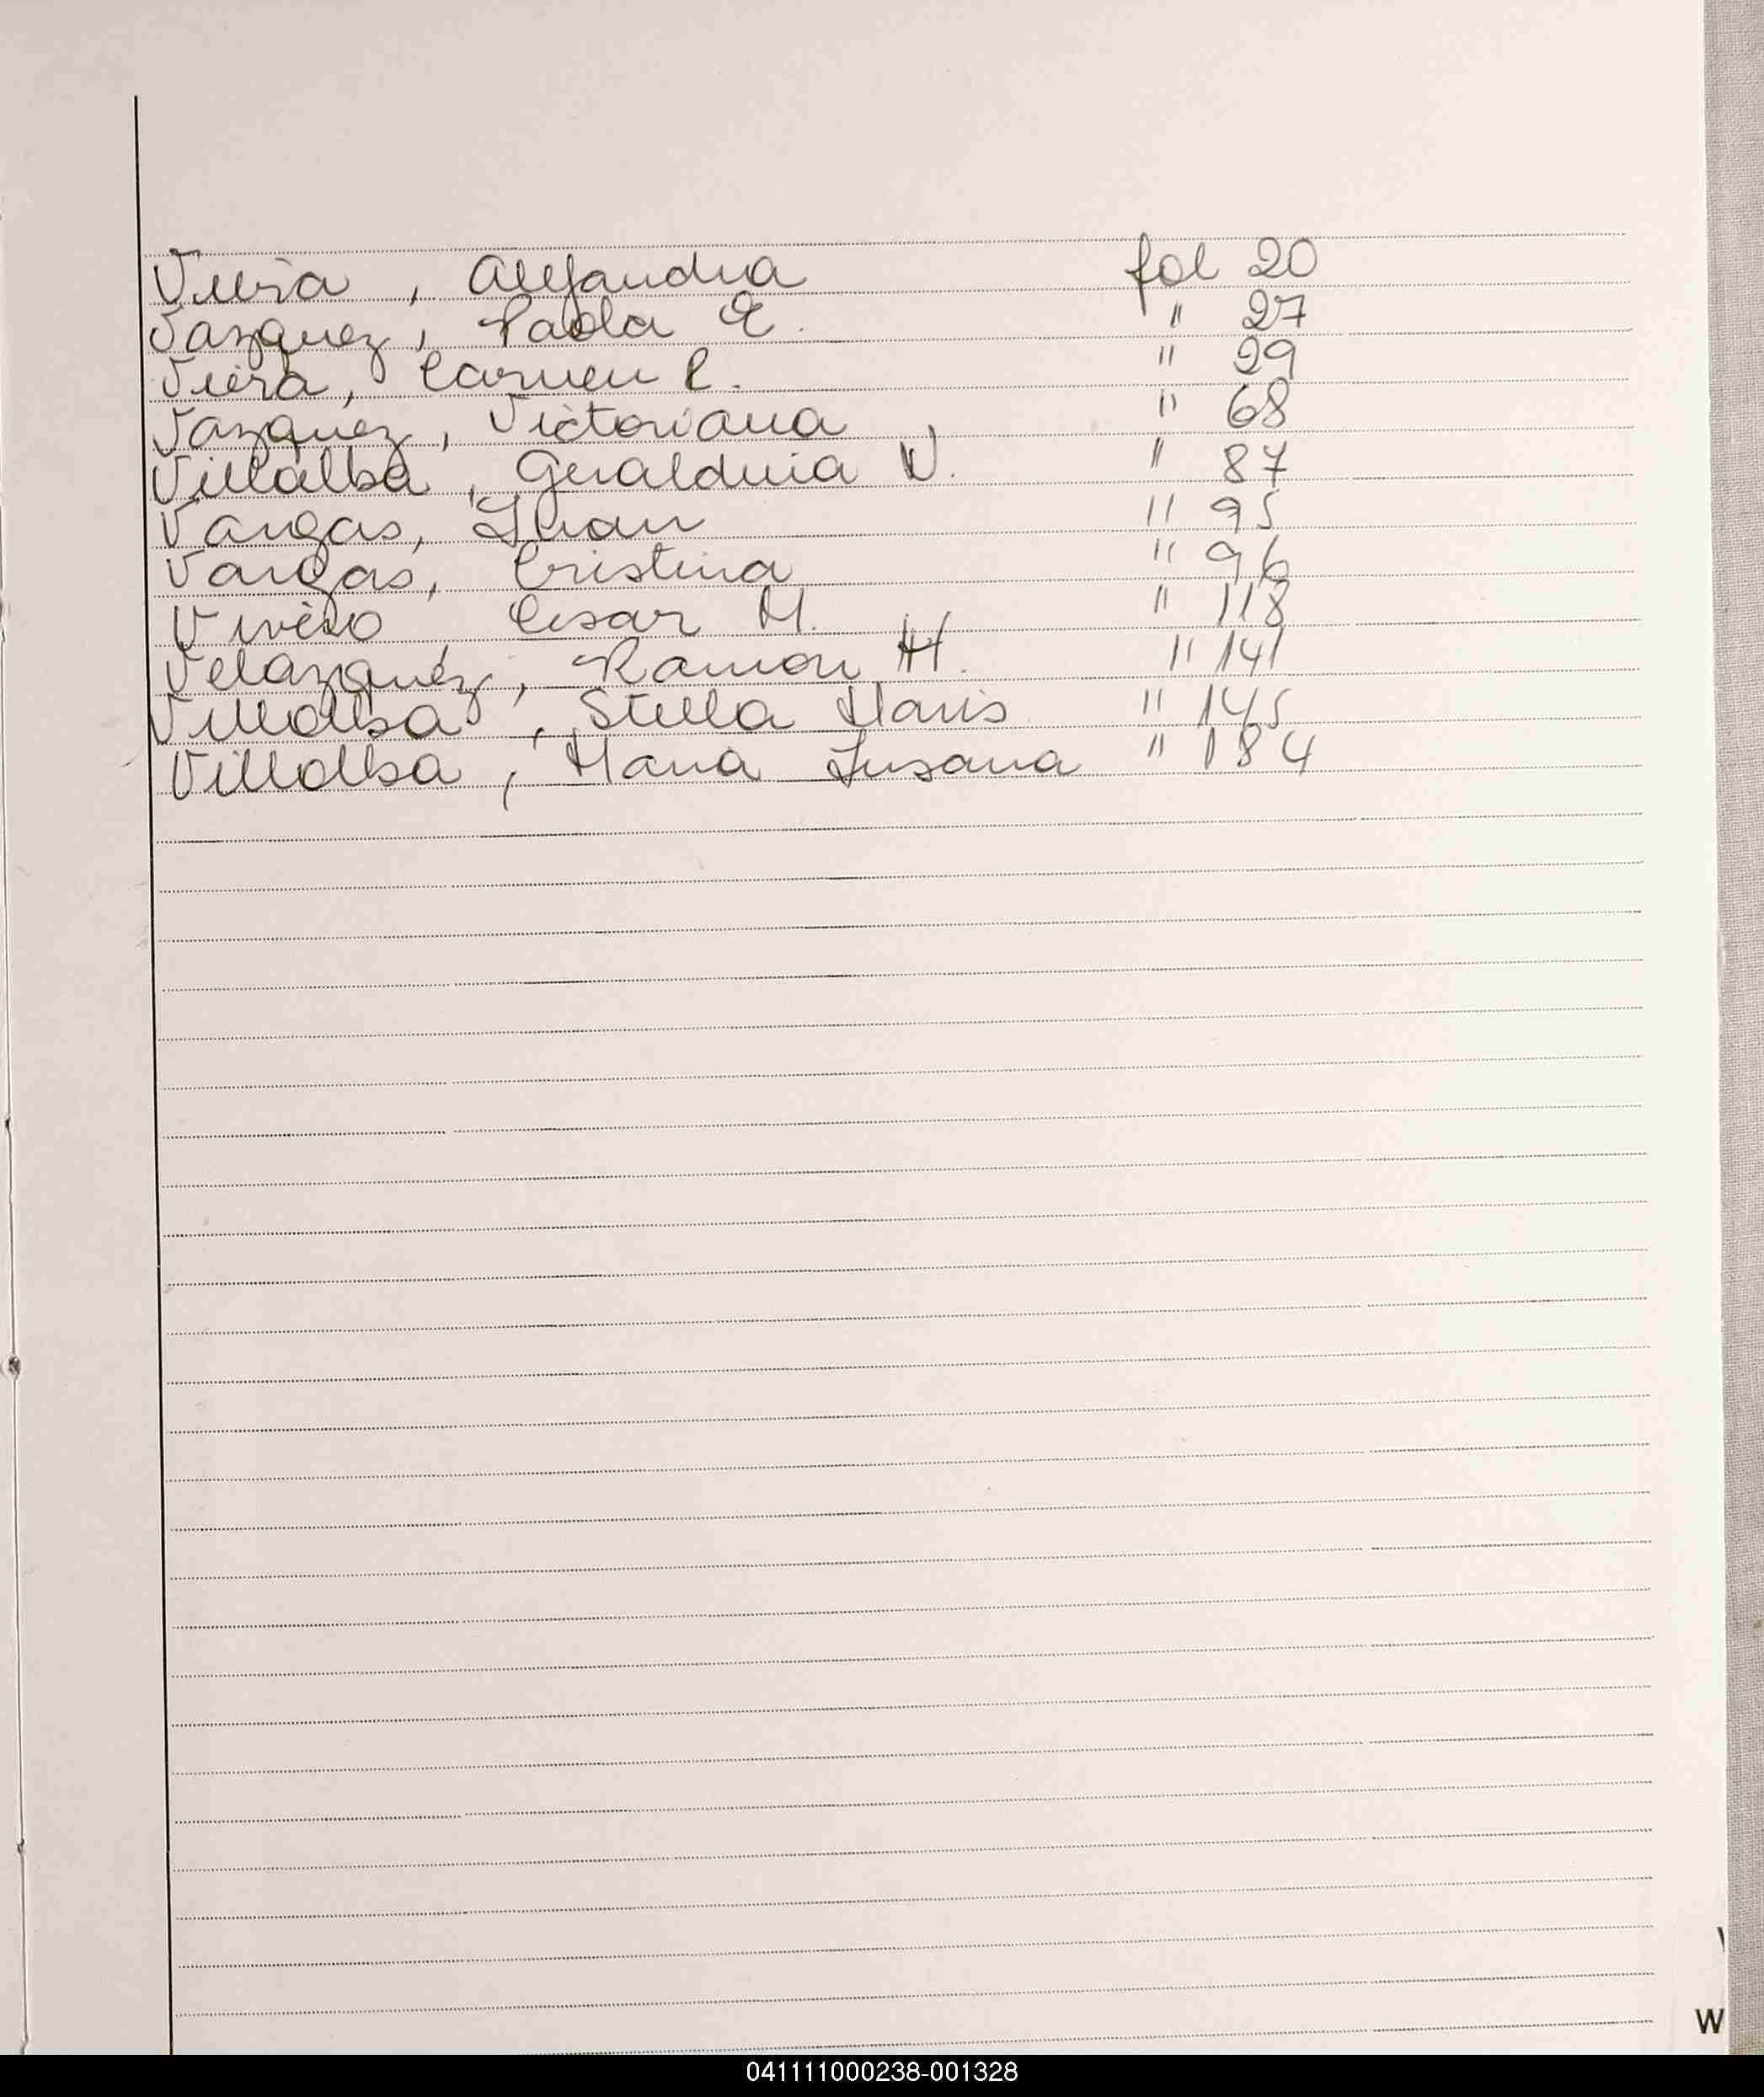 Viera, Alejandra fol 20
Vazquez, Paola E. " 27
Viera, Carmen R. " 29
Vazquez, Victoriana " 68
Villalba, Geraldina N. " 87
Vargas, Juan " 95
Vargas, Cristina " 96
Vivero, Cesar M. " 118
Velazquez, Ramon H. " 141
Villalba, Stella Maris " 145
Villalba, Maria Susana " 184
W
041111000238-001328